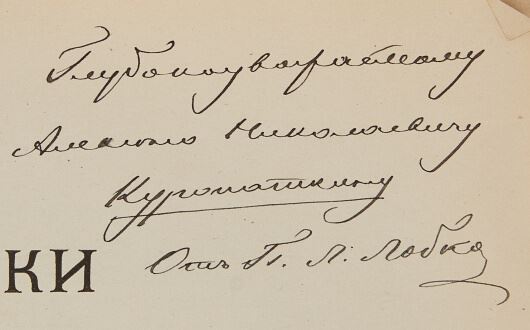 Глубокоуважаемому
Алексею Николаевичу
Куропаткину
Отъ П. Л. Лобко
КИ